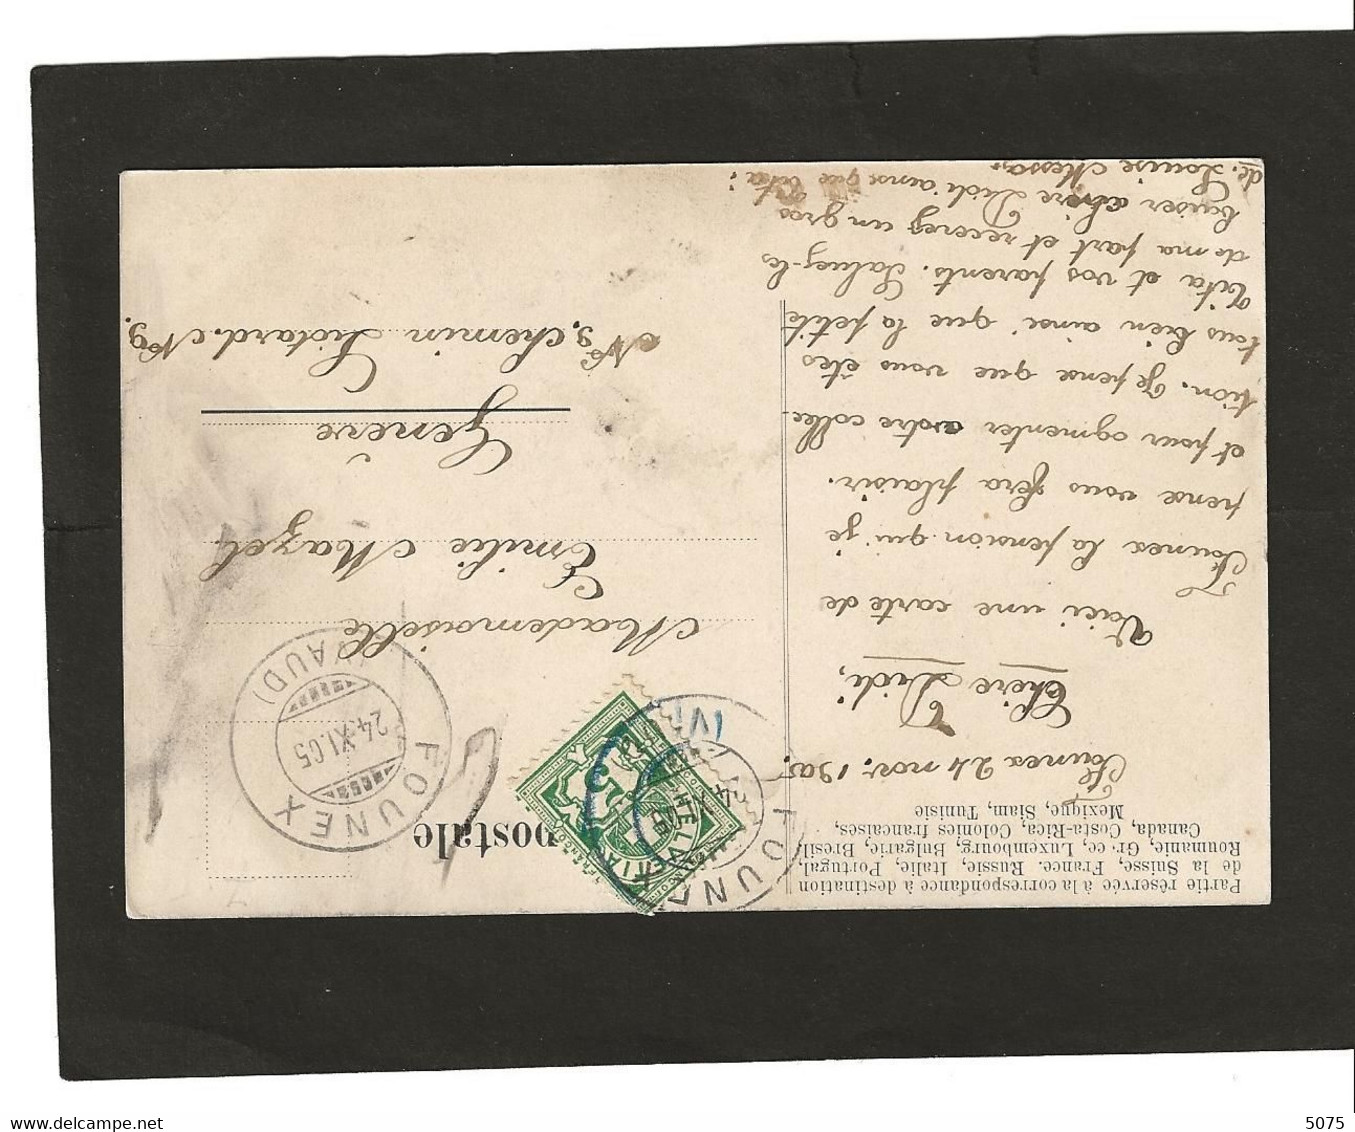 postale
Partie réservée à la correspondance à destination
de la Suisse, France, Russie, Italie, Portugal,
Roumanie, Grèce, Luxembourg, Bulgarie, Brésil,
Canada, Costa-Rica, Colonies françaises,
Mexique, Siam, Tunisie
Founex 24 nov. 1905
Chère Didi,
Voici une carte de
Founex la pension qui je
pense vous fera plaisir.
et pour ogmenter votre collec-
tion. Je pense que vous êtes
tous bien ainsi que la petite
Tita et vos parents. Saluez-les
de ma part et recevez un gros
baiser chère Didi ainsi que Tita:
de. Louise
Mademoiselle
Emilie Mazel
Genève
No 9, chemin Liotard. No 9.
FOUNEX
24.XI.05
(VAUD)
FOUNEX
HELVETIA
FRANCO
5
delcampe.net
5075